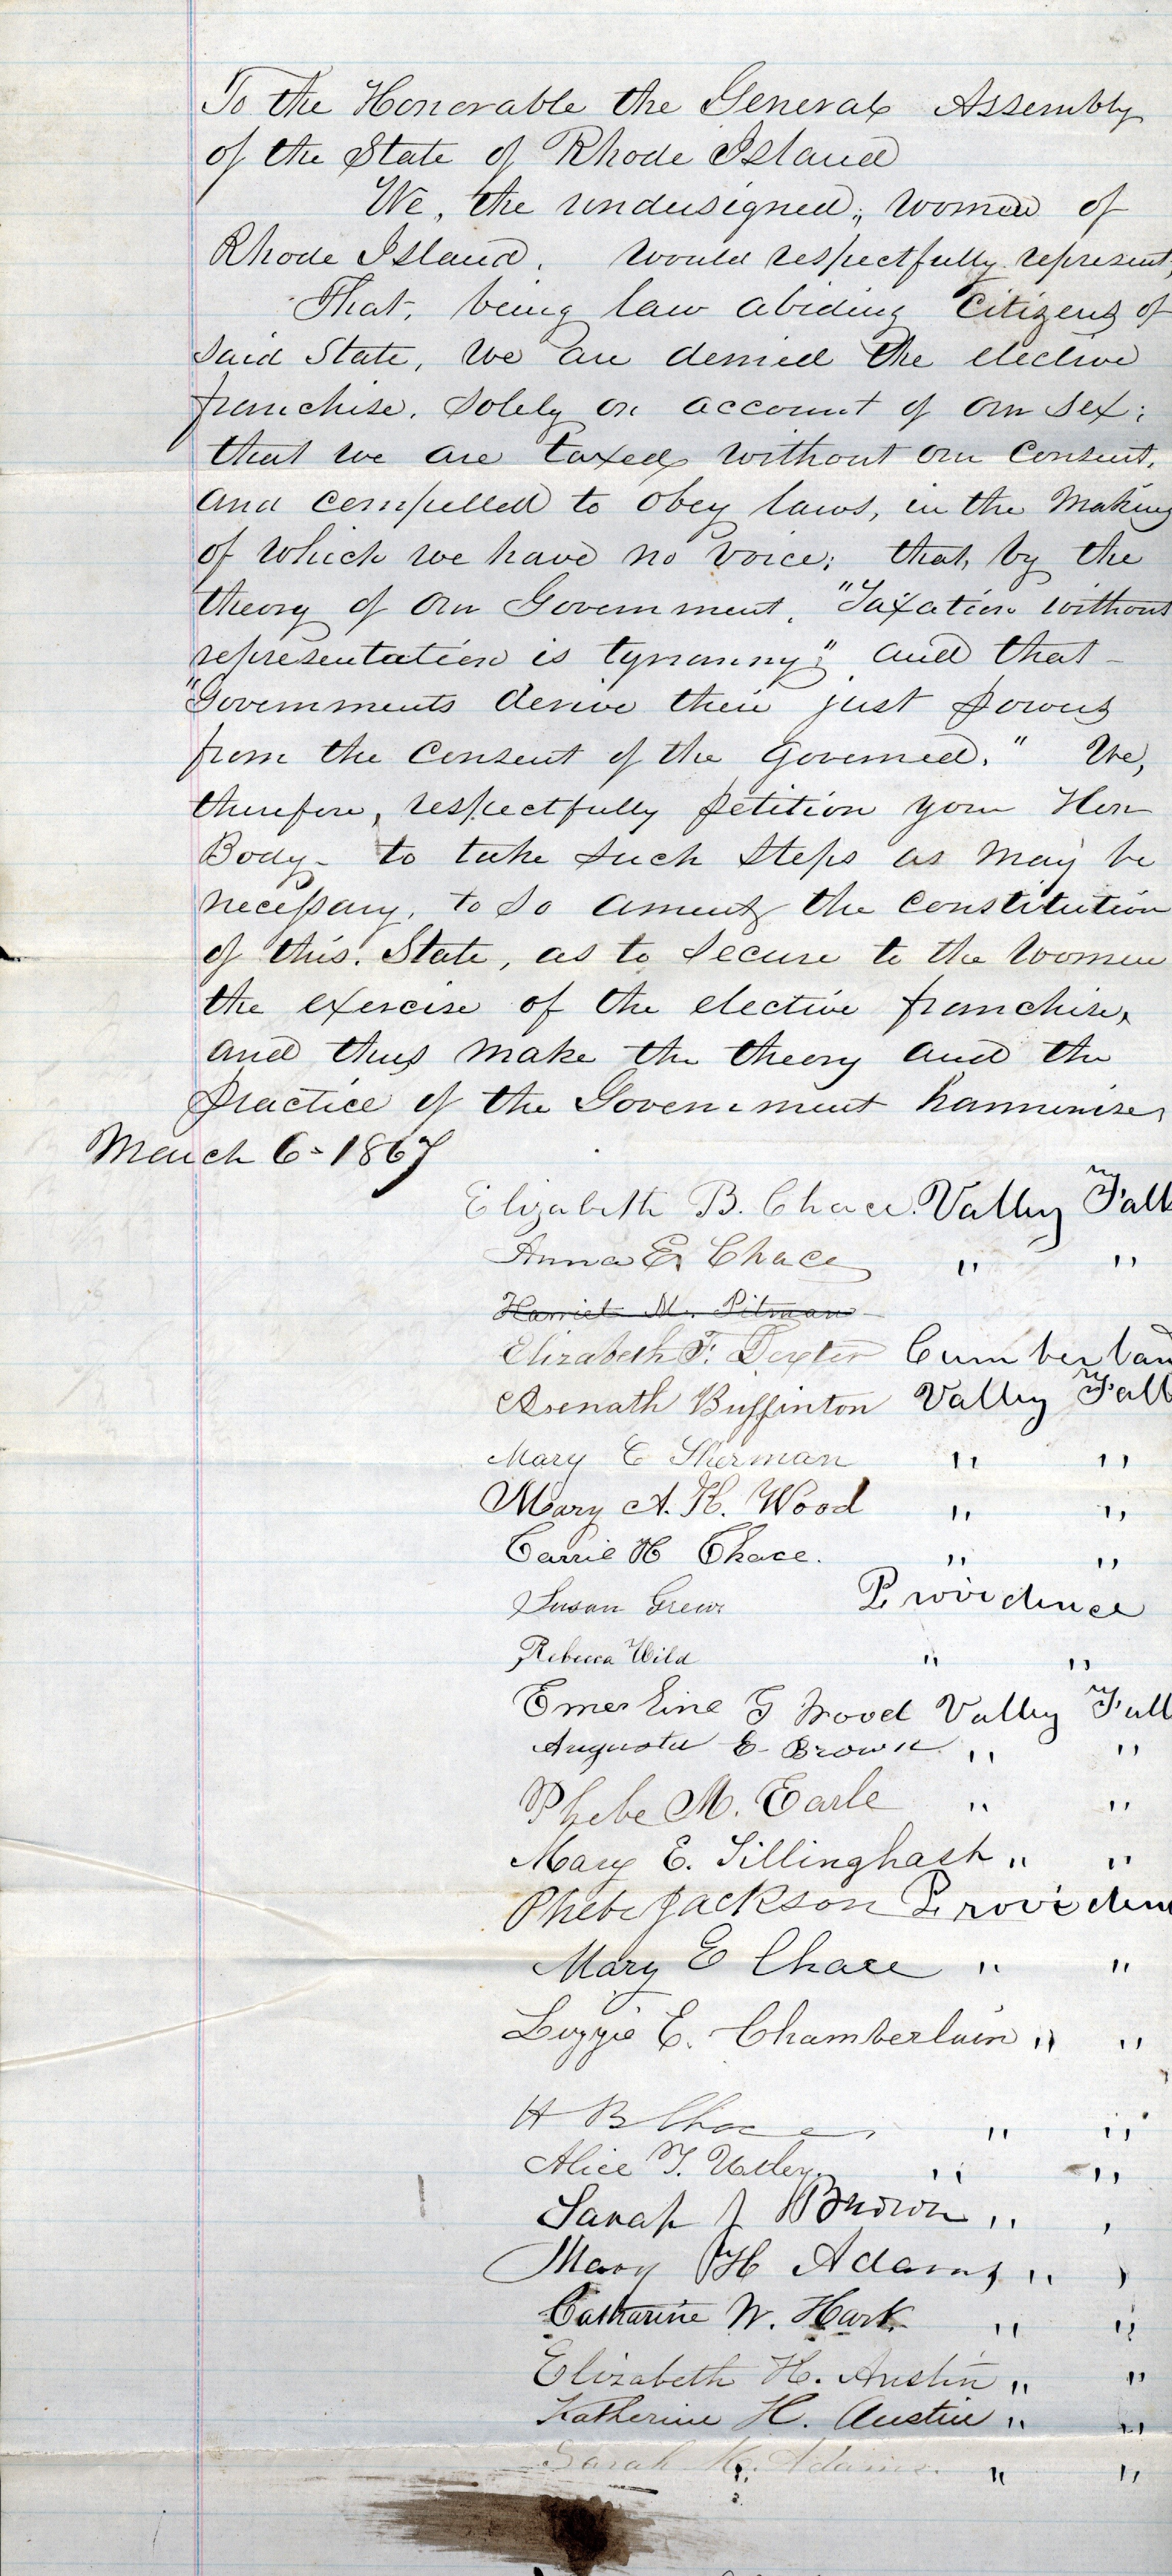 To the Honorable the General Assembly
of the State of Rhode Island
We, the undersigned, women of
Rhode Island, would respectfully represent,
That, being law abiding Citizens of
said State, we are denied the elective
franchise, solely on account of our sex;
that we are taxed without our consent,
and compelled to obey laws, in the making
of which we have no voice; that, by the
theory of our Government, "Taxation without
representation is tyranny"; and that
"Governments derive their just powers
from the consent of the governed." We,
therefore, respectfully petition your Hon
Body - to take such steps as may be
necessary, to so amend the constitution
of this State, as to secure to the women
the exercise of the elective franchise,
and thus make the theory and the
practice of the Government harmonise,
March 6 - 1867
Elizabeth B. Chace. Valley Fall
Anna E. Chace " "
Harriet M. Pitman
Elizabeth F. Dexter Cumberlan
Asenath Buffinton Valley Fall
Mary C Sherman " "
Mary A. H. Wood " "
Carrie H Chace. " "
Susan Grew Providence
Rebecca Wild " "
Emerline G Wood Valley Fall
Augusta E. Brown " "
Phebe M. Earle " "
Mary E. Tillinghast " "
Phebe Jackson Providen
Mary E Chace " "
Lizzie E. Chamberlain " "
H B Chace " "
Alice T. " "
Sarah J Brown " "
Mary H Adams " "
Catharine W. Hart. " "
Elizabeth H. Austin " "
Katherine H. Austin " "
Sarah Adams. " "